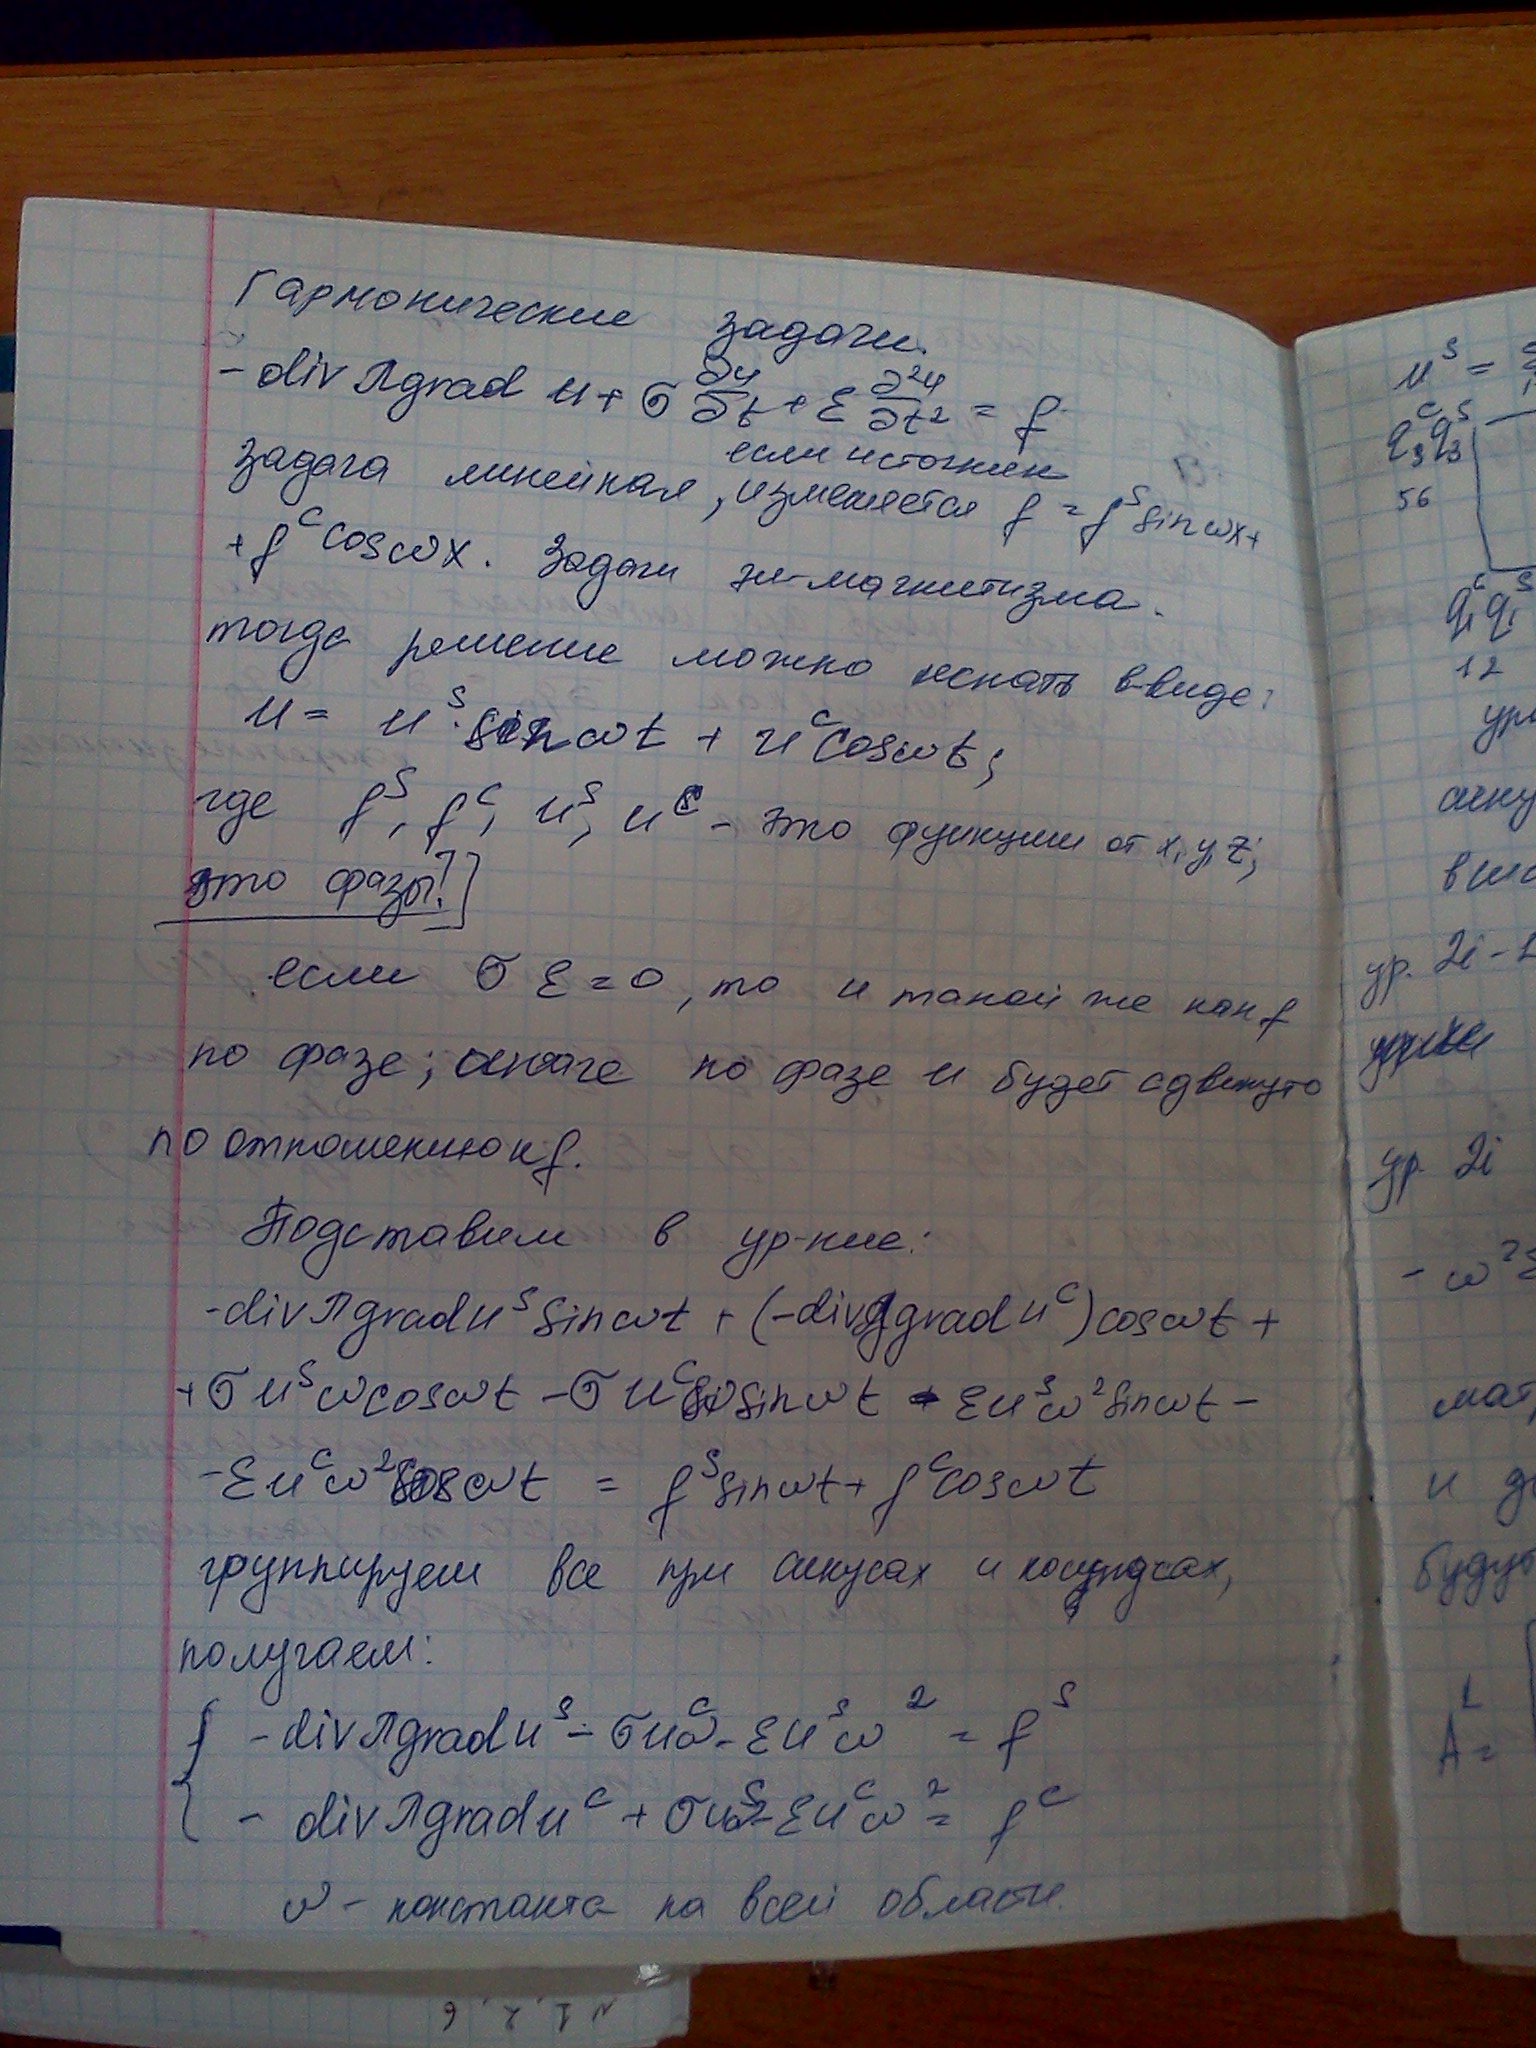 Гармонические задачи.
- div λ grad u + σ ∂u/∂t + ε ∂²u/∂t² = f
если источник
задача линейная, изменяется f = f^s sin ωx +
+ f^c cos ωx. Задачи эл-магнитизма.
тогда решение можно искать в виде:
u = u^s · sin ωt + u^c cos ωt;
где f^s, f^c, u^s, u^c - это функции от x, y, z;
это фазы!]
если σ ε = 0, то u такой же как f
по фазе; иначе по фазе u будет сдвинуто
по отношению к f.
Подставим в ур-ние:
- div λ grad u^s sin ωt + (- div λ grad u^c) cos ωt +
+ σ u^s ω cos ωt - σ u^c ω sin ωt - ε u^s ω² sin ωt -
- ε u^c ω² cos ωt = f^s sin ωt + f^c cos ωt
группируем все при синусах и косинусах,
получаем:
{ - div λ grad u^s - σ u^c ω - ε u^s ω² = f^s
- div λ grad u^c + σ u^s ω - ε u^c ω² = f^c
ω - константа на всей области.
u^s =
q₃^c q₃^s
56
q₁^c q₁^s
12
ур
сину
ур. 2i - 1
ур. 2i
- ω² ε
мат
и
будут
A^L =
N 1, 2, 6